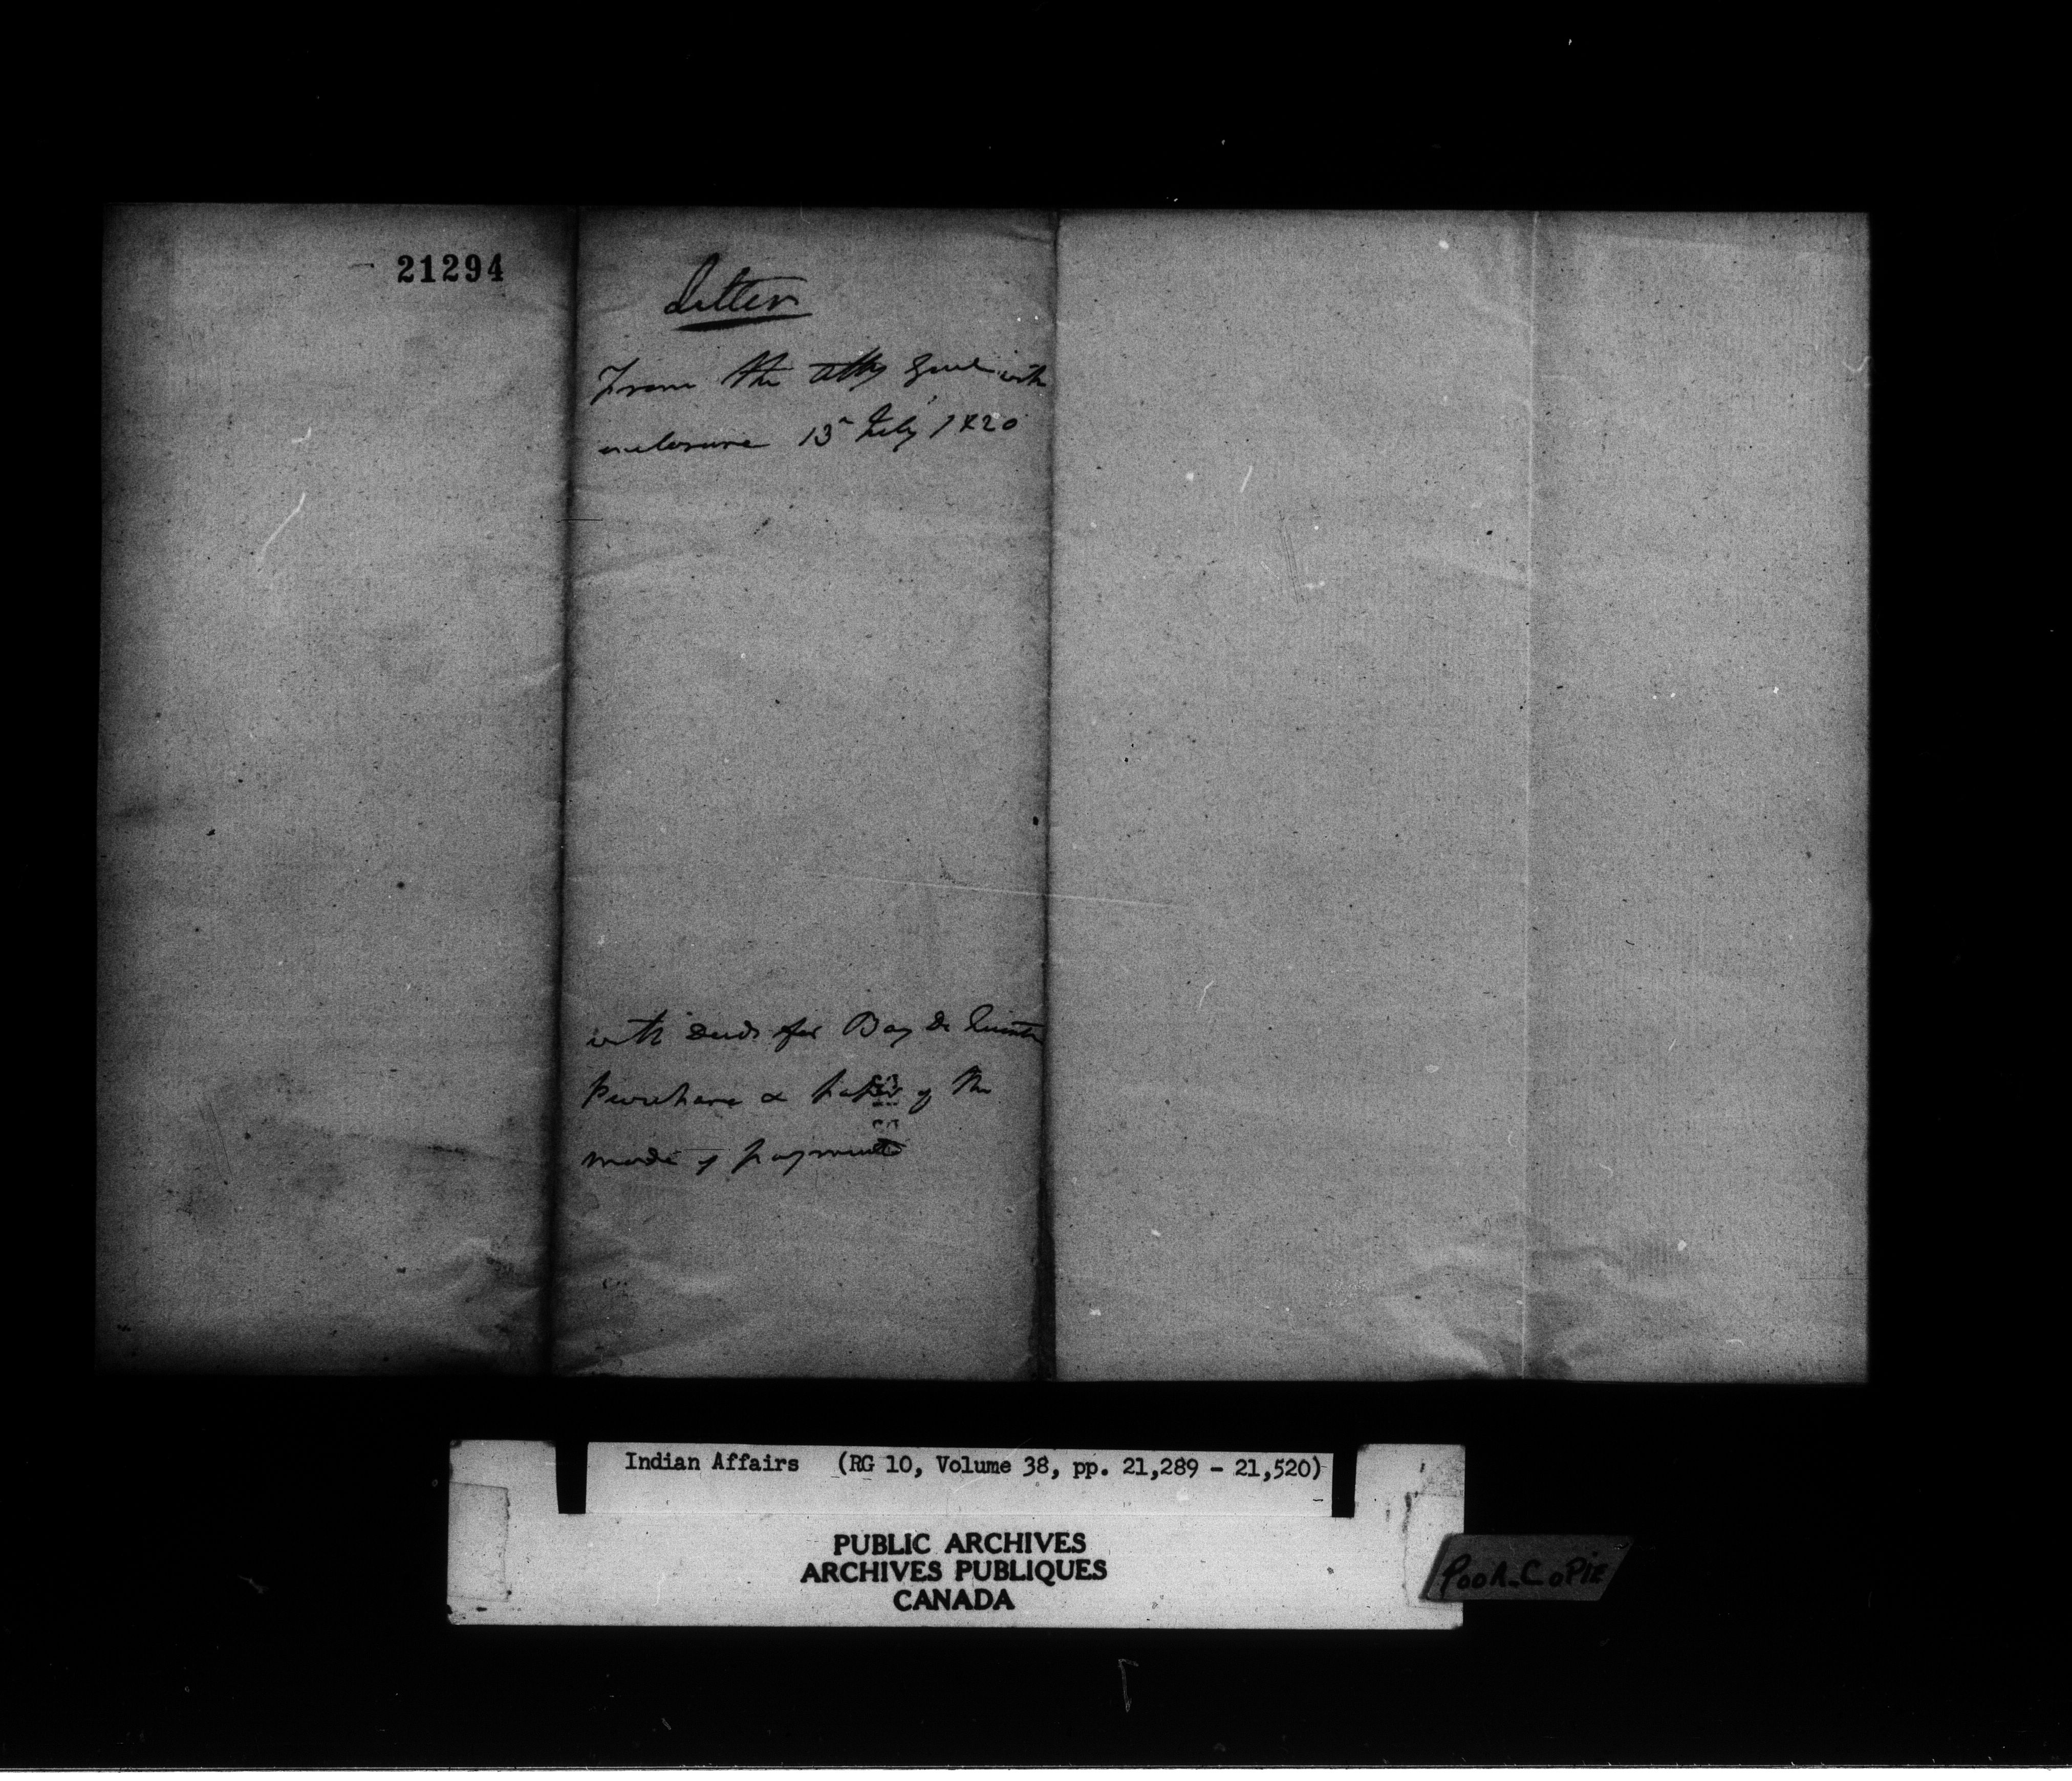 21294
Letter
From the Atty Genl with
enclosure 13th July 1820
with Deeds for Bay De Quinte
Purchase & of the
mode of payment
Indian Affairs (RG 10, Volume 38, pp. 21,289 - 21,520)
PUBLIC ARCHIVES
ARCHIVES PUBLIQUES
CANADA
POOR-COPIE